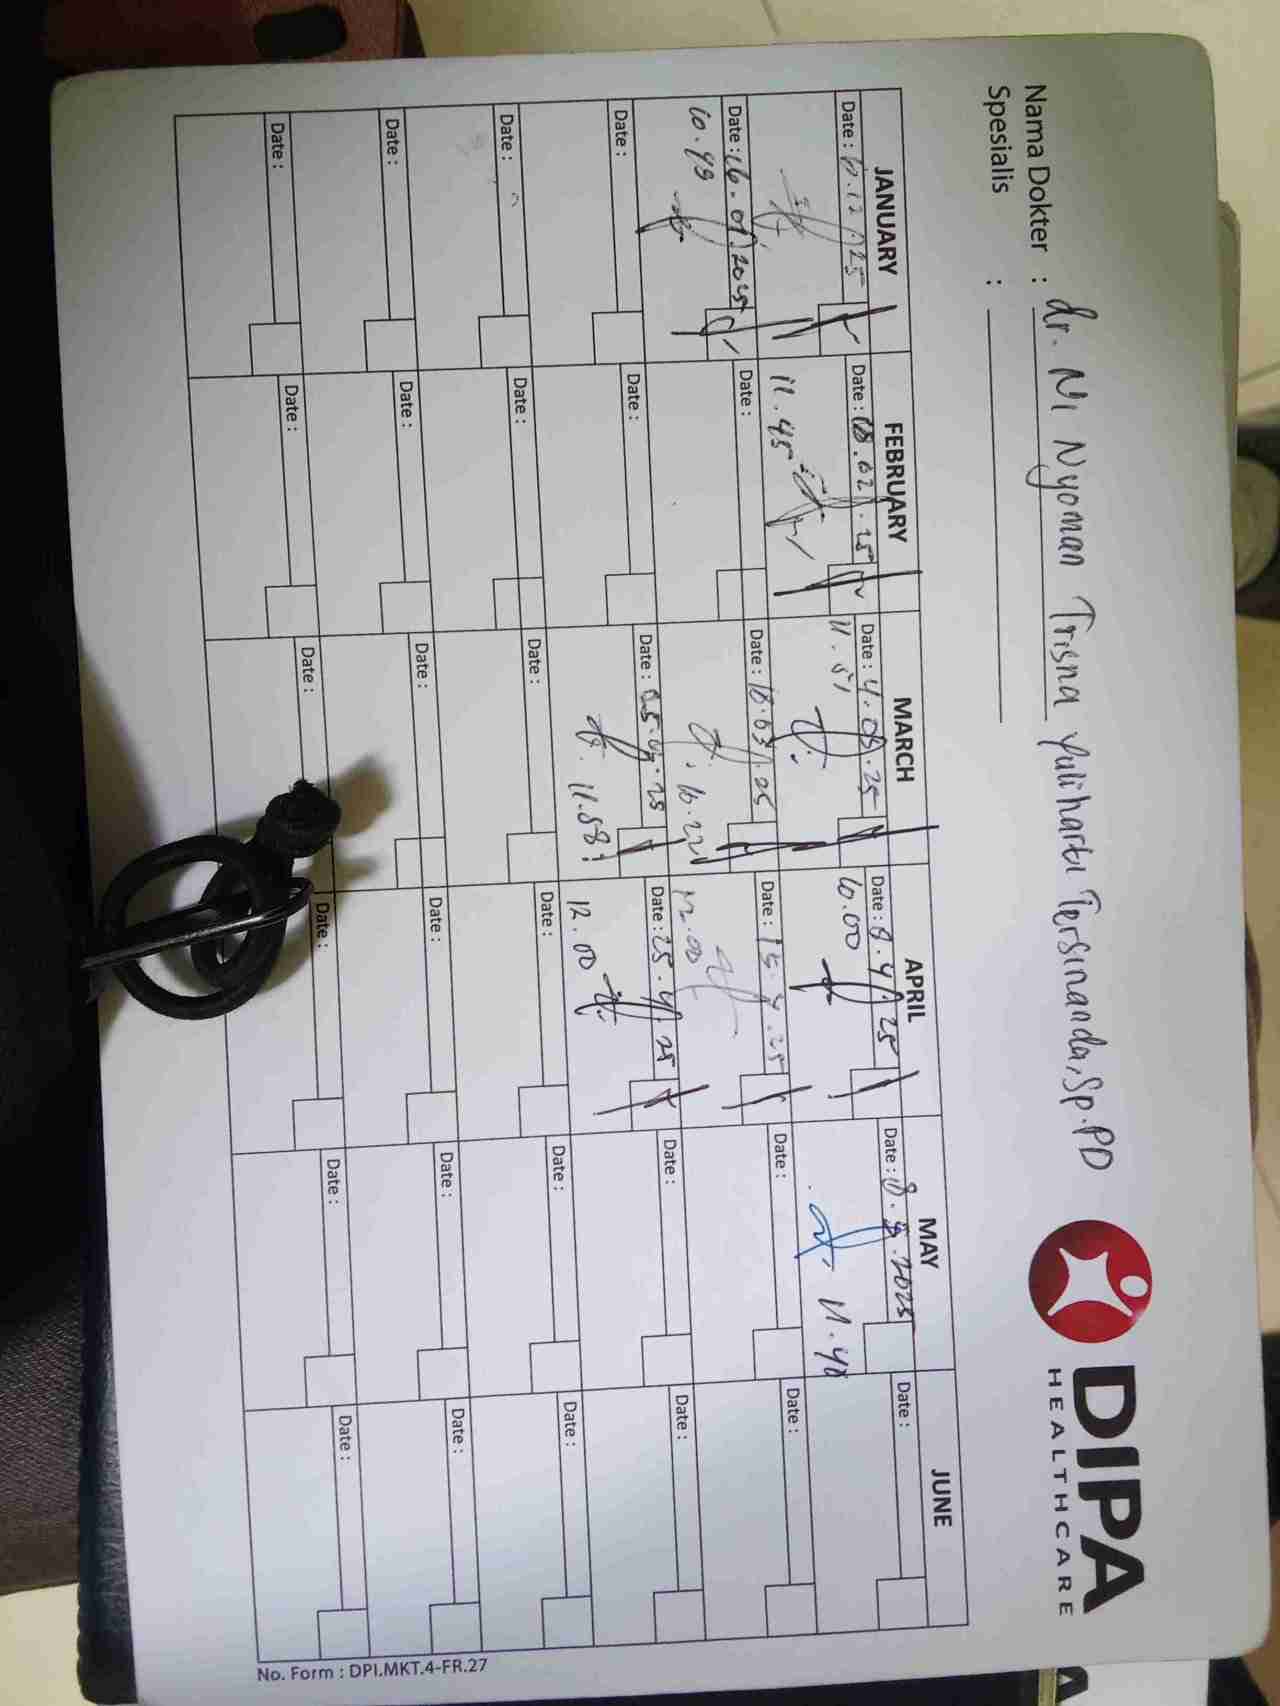 Nama Dokter : dr. Ni Nyoman Trisna Yuliharti Tersinanda, Sp.PD
Spesialis :
DIPA
HEALTHCARE
JANUARY FEBRUARY MARCH APRIL MAY JUNE
Date : Date : 18.02.25 Date : 4.03.25 Date : 8.4.25 Date : 8.5.2025 Date :
11.45 11.51 10.00 11.48
Date : 16.01.2025 Date : Date : 18.03.25 Date : 15.4.25 Date : Date :
10.49 16.22 12.00
Date : Date : Date : 25.03.25 Date : 25.4.25 Date : Date :
11.58 12.00
Date : Date : Date : Date : Date : Date :
Date : Date : Date : Date : Date : Date :
Date : Date : Date : Date : Date : Date :
No. Form : DPI.MKT.4-FR.27